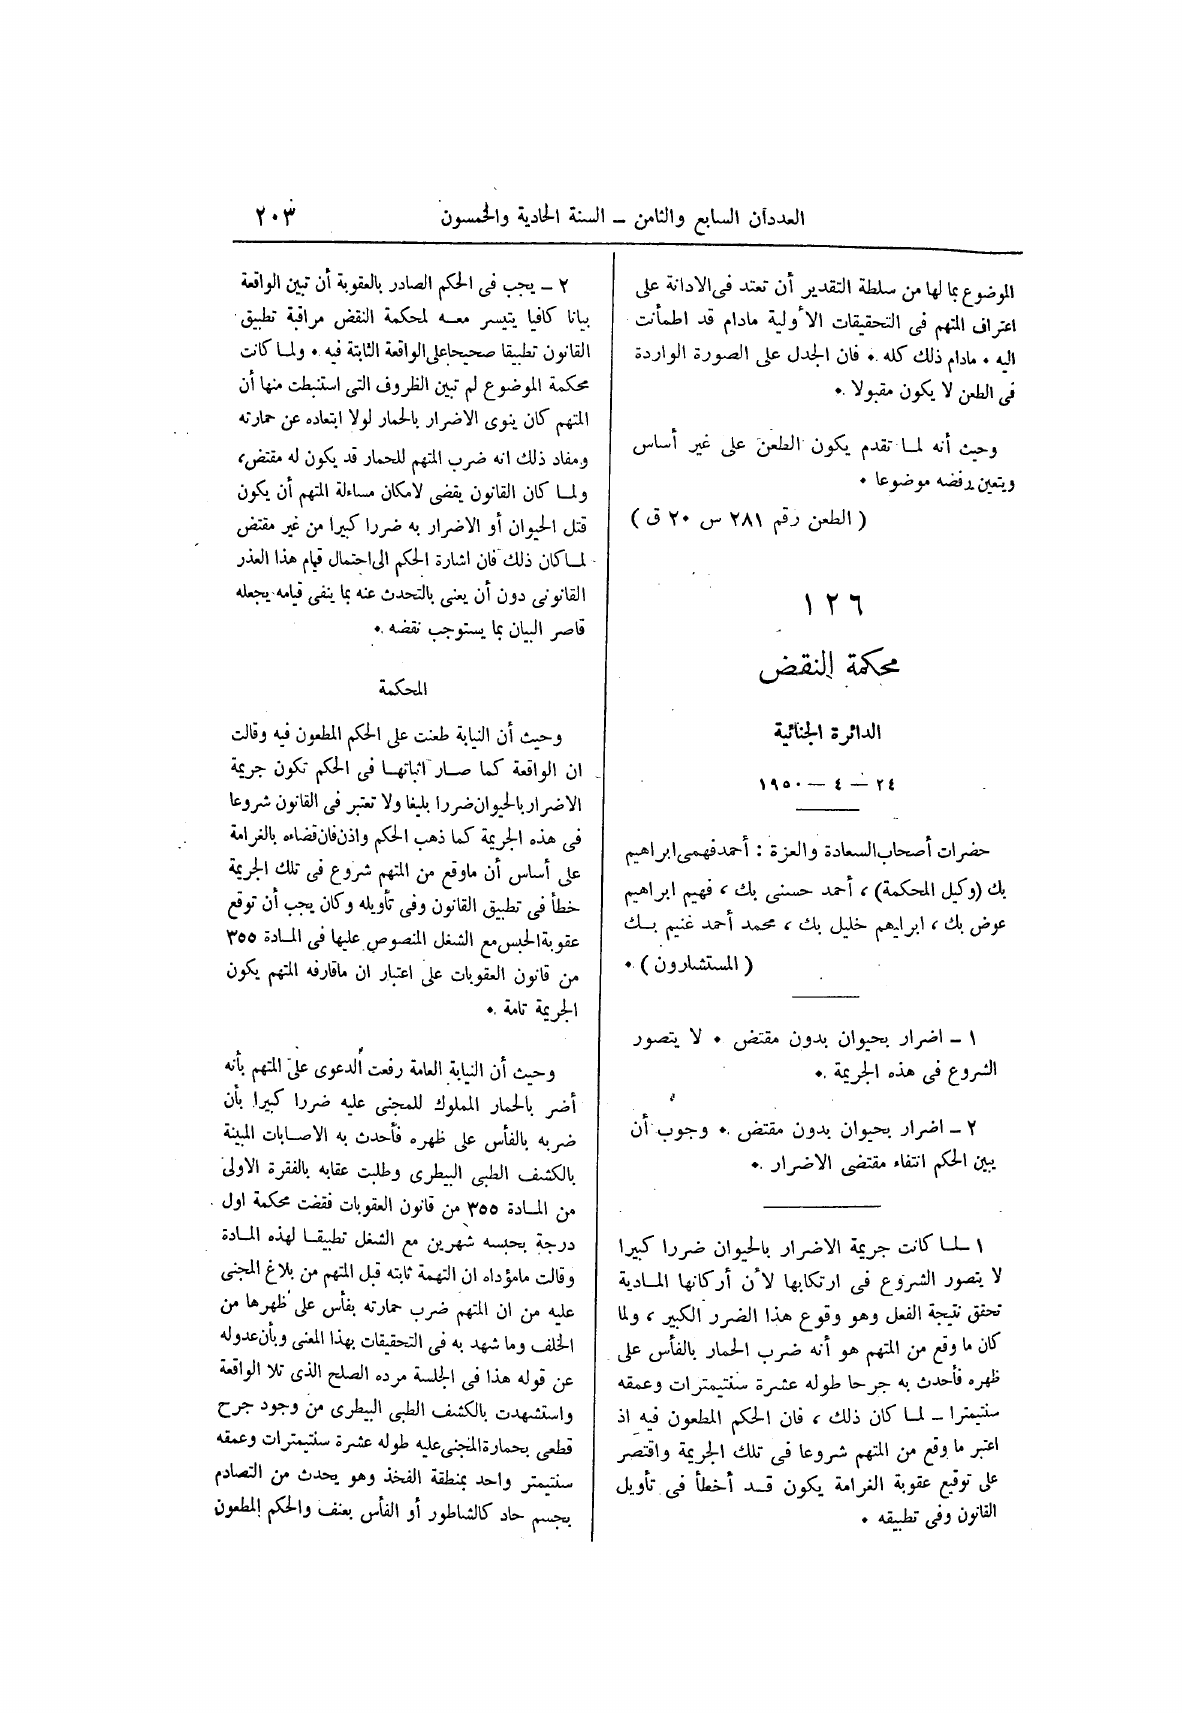 العددان السابع والثامن — السنة الحادية والخمسون
٢٠٣
الموضوع بما لها من سلطة التقدير أن تعتد فى الادانة على
اعتراف المتهم فى التحقيقات الأولية مادام قد اطمأنت
اليه ٠ مادام ذلك كله ٠ فان الجدل على الصورة الواردة
فى الطعن لا يكون مقبولا ٠
وحيث أنه لما تقدم يكون الطعن على غير أساس
ويتعين رفضه موضوعا ٠
( الطعن رقم ٢٨١ س ٢٠ ق )
١٢٦
محكمة النقض
الدائرة الجنائية
٢٤ — ٤ — ١٩٥٠
حضرات أصحاب السعادة والعزة : أحمد فهمى ابراهيم
بك (وكيل المحكمة) ، أحمد حسنى بك ، فهيم ابراهيم
عوض بك ، ابراهيم خليل بك ، محمد أحمد غنيم بك
( المستشارون ) ٠
١ — اضرار بحيوان بدون مقتض ٠ لا يتصور
الشروع فى هذه الجريمة ٠
٢ — اضرار بحيوان بدون مقتض ٠ وجوب أن
يبين الحكم انتفاء مقتضى الاضرار ٠
١ — لما كانت جريمة الاضرار بالحيوان ضررا كبيرا
لا يتصور الشروع فى ارتكابها لأن أركانها المادية
تحقق نتيجة الفعل وهو وقوع هذا الضرر الكبير ، ولما
كان ما وقع من المتهم هو أنه ضرب الحمار بالفأس على
ظهره فأحدث به جرحا طوله عشرة سنتيمترات وعمقه
سنتيمترا — لما كان ذلك ، فان الحكم المطعون فيه اذ
اعتبر ما وقع من المتهم شروعا فى تلك الجريمة واقتصر
على توقيع عقوبة الغرامة يكون قد أخطأ فى تأويل
القانون وفى تطبيقه ٠
٢ — يجب فى الحكم الصادر بالعقوبة أن تبين الواقعة
بيانا كافيا يتيسر معه لمحكمة النقض مراقبة تطبيق
القانون تطبيقا صحيحا على الواقعة الثابتة فيه ٠ ولما كانت
محكمة الموضوع لم تبين الظروف التى استنبطت منها أن
المتهم كان ينوى الاضرار بالحمار لولا ابتعاده عن حمارته
ومفاد ذلك انه ضرب المتهم للحمار قد يكون له مقتض ،
ولما كان القانون يقضى لامكان مساءلة المتهم أن يكون
قتل الحيوان أو الاضرار به ضررا كبيرا من غير مقتض
لما كان ذلك فان اشارة الحكم الى احتمال قيام هذا العذر
القانونى دون أن يعنى بالتحدث عنه بما ينفى قيامه يجعله
قاصر البيان بما يستوجب نقضه ٠
المحكمة
وحيث أن النيابة طعنت على الحكم المطعون فيه وقالت
ان الواقعة كما صار اثباتها فى الحكم تكون جريمة
الاضرار بالحيوان ضررا بليغا ولا تعتبر فى القانون شروعا
فى هذه الجريمة كما ذهب الحكم واذن فان قضاءه بالغرامة
على أساس أن ماوقع من المتهم شروع فى تلك الجريمة
خطأ فى تطبيق القانون وفى تأويله وكان يجب أن توقع
عقوبة الحبس مع الشغل المنصوص عليها فى المادة ٣٥٥
من قانون العقوبات على اعتبار ان ماقارفه المتهم يكون
الجريمة تامة ٠
وحيث أن النيابة العامة رفعت الدعوى على المتهم بأنه
أضر بالحمار المملوك للمجنى عليه ضررا كبيرا بأن
ضربه بالفأس على ظهره فأحدث به الاصابات المبينة
بالكشف الطبى البيطرى وطلبت عقابه بالفقرة الاولى
من المادة ٣٥٥ من قانون العقوبات فقضت محكمة اول
درجة بحبسه شهرين مع الشغل تطبيقا لهذه المادة
وقالت مامؤداه ان التهمة ثابته قبل المتهم من بلاغ المجنى
عليه من ان المتهم ضرب حمارته بفأس على ظهرها من
الخلف وما شهد به فى التحقيقات بهذا المعنى وبأن عدوله
عن قوله هذا فى الجلسة مرده الصلح الذى تلا الواقعة
واستشهدت بالكشف الطبى البيطرى من وجود جرح
قطعى بحمارة المجنى عليه طوله عشرة سنتيمترات وعمقه
سنتيمتر واحد بمنطقة الفخذ وهو يحدث من التصادم
بجسم حاد كالشاطور أو الفأس بعنف والحكم المطعون